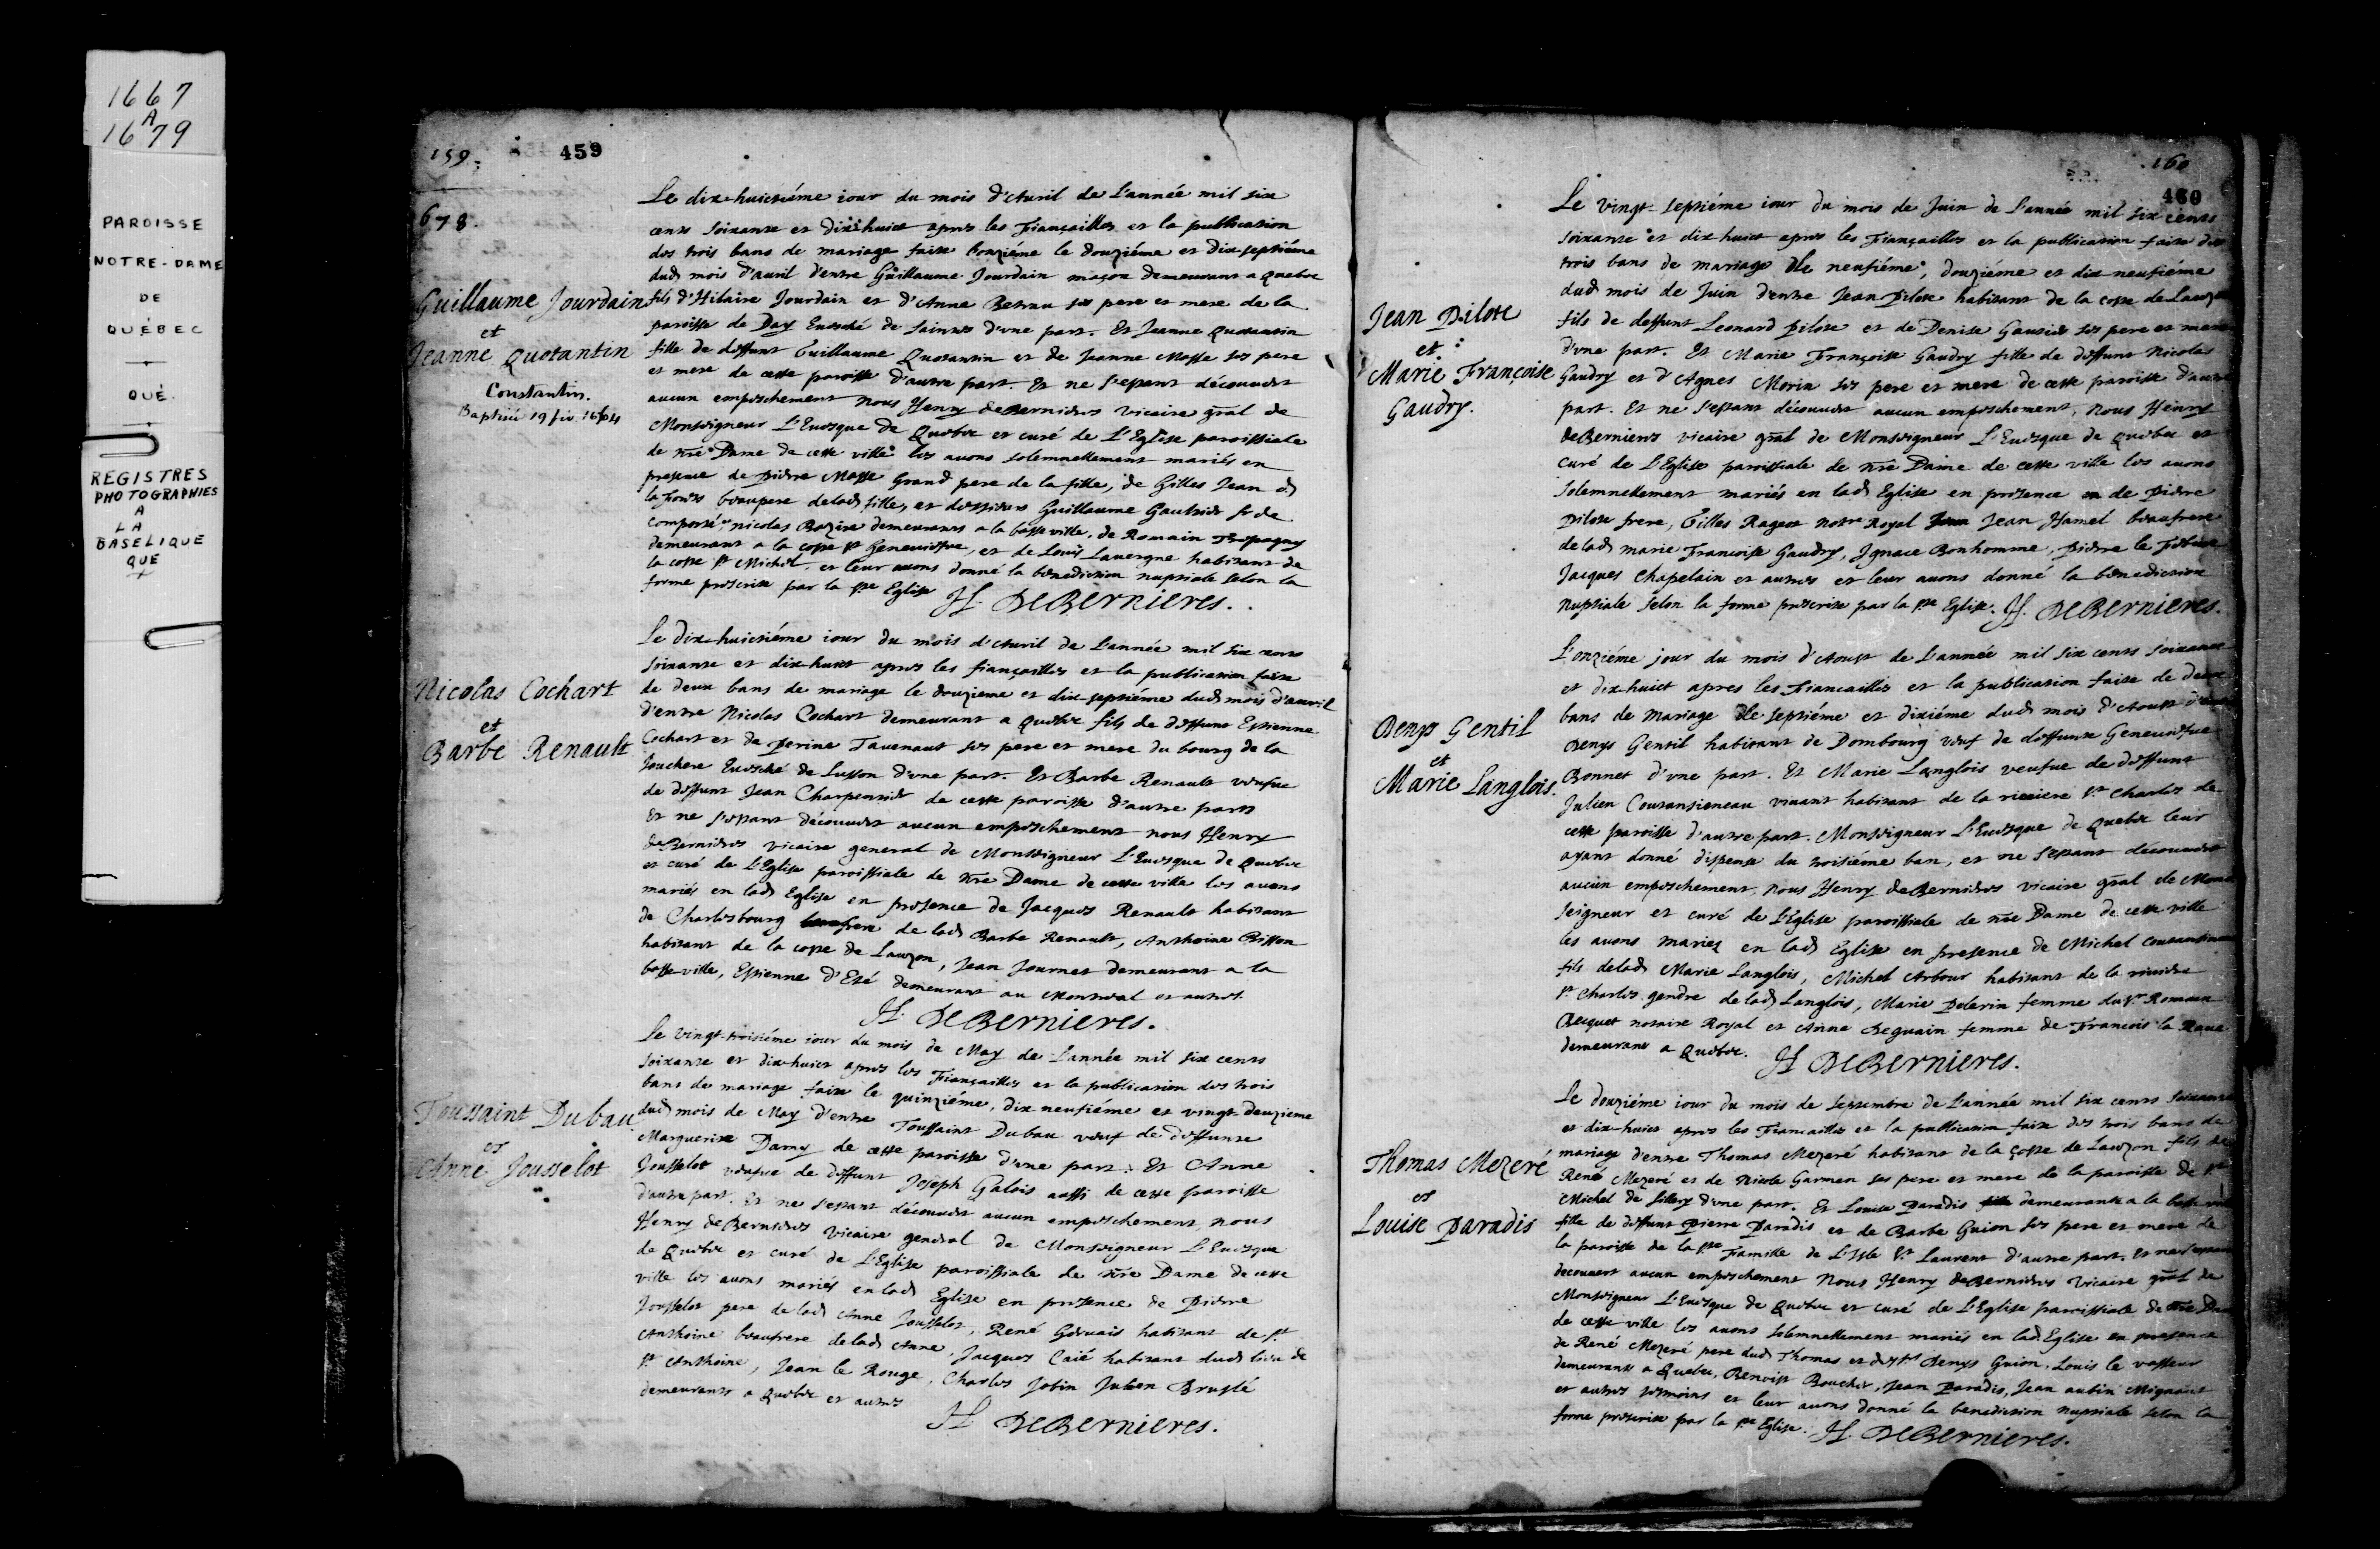 1667
A
1679
PAROISSE
NOTRE-DAME
DE
QUÉBEC
QUÉ.
REGISTRES
PHOTOGRAPHIES
A
LA
BASELIQUE
QUE
159.
459
678.
Guillaume Jourdain
et
Jeanne Quotantin
Constantin.
Le dix-huictiéme iour du mois d'Auril de L'année mil six
cens soixante et dix huict apres les Fiançailles et la publication
des trois bans de mariage faite l'onziéme le douziéme et dix septiéme
dud mois d'auril d'entre Guillaume Jourdain maçon demeurant a Quebec
fils d'Hilaire Jourdain et d'Anne ses pere et mere de la
paroisse de Euesché de Saintes d'vne part. Et Jeanne Quotantin
fille de deffunt Guillaume Quotantin et de Jeanne Masse ses pere
et mere de cette paroisse d'autre part. Et ne s'estant découuert
aucun empeschement Nous Henry deBernieres vicaire gñal de
Monseigneur L'Euesque de Quebec et curé de L'Eglise paroissiale
de nre Dame de cette ville les auons solemnellement mariés en
presence de Pierre Masse Grand pere de la fille, de Gilles Jean
beaupere delad fille, et Guillaume Gaultier sr de
Comporté, nicolas demeurants a la basse ville, de Romain Trepagny
demeurant a la coste st Geneuiefue, et de Louis Lauergne habitant de
la coste st Michel, et leur auons donné la benediction nuptiale selon la
forme prescrite par la ste Eglise H. DeBERNIERES.
Nicolas Cochart
et
Barbe Renault
Le dix-huictiéme iour du mois d'Auril de L'année mil six cens
soixante et dix-huict apres les fiançailles et la publication faite
de deux bans de mariage le douzieme et dix-septiéme dud mois d'auril
d'entre Nicolas Cochart demeurant a Quebec fils de deffunt Estienne
Cochart et de Perine Tauenaut ses pere et mere du bourg de la
Jouchere Euesché de Lusson d'vne part. Et Barbe Renault veufue
de deffunt Jean Charpentier de cette paroisse d'autre part
Et ne s'estant découuert aucun empeschement nous Henry
deBernieres vicaire general de Monseigneur L'Euesque de Quebec
et curé de L'Eglise paroissiale de nre Dame de cette ville les auons
mariés en lad Eglise en presence de Jacques Renault habitant
de Charlesbourg frere de lad Barbe Renault, Anthoine Bisson
habitant de la coste de Lauzon, Jean Journet demeurant a la
basse-ville, Estienne d'Eté demeurant au Montreal et autres.
H. DeBERNIERES.
Toussaint Dubau
et
Anne Jousselot
Le vingt-troisiéme iour du mois de May de L'année mil six cents
soixante et dix-huict apres les Fiançailles et la publication des trois
bans de mariage faite le quinziéme, dix neufiéme et vingt-deuzieme
dud mois de May d'entre Toussaint Dubau veuf de deffunte
Marguerite Damy de cette paroisse d'vne part. Et Anne
Jousselot veufue de deffunt Joseph Galois aussi de cette paroisse
d'autre part. Et ne s'estant découuert aucun empeschement, nous
Henry deBernieres vicaire general de Monseigneur L'Euesque
de Quebec et curé de L'Eglise paroissiale de nre Dame de cette
ville les auons mariés en lad Eglise en presence de Pierre
Jousselot pere de lad Anne Jousselot, René Geruais habitant de st
Anthoine beaufrere delad Anne, Jacques Caié habitant dud lieu de
st Anthoine, Jean le Rouge, Charles Jobin Julien Bruslé
demeurants a Quebec et autres
H DeBERNIERES.
160
460
Jean Pilote
et
Marie Françoise
Gaudry.
Le vingt-septiéme iour du mois de Juin de L'année mil six cens
soixante et dix huict apres les Fiançailles et la publication faite des
trois bans de mariage le neufiéme, douziéme et dix-neufiéme
dud mois de Juin d'entre Jean Pilote habitant de la coste de Lauzon
fils de deffunt Leonard Pilote et de Denise Gautier ses pere et mere
d'vne part. Et Marie Françoise Gaudry fille de deffunt Nicolas
Gaudry et d'Agnes Morin ses pere et mere de cette paroisse d'autre
part. Et ne s'estant découuert aucun empeschement, Nous Henry
deBernieres vicaire gñal de Monseigneur L'Euesque de Quebec et
curé de L'Eglise paroissiale de nre Dame de cette ville les auons
solemnellement mariés en lad Eglise en presence de Pierre
Pilote frere, Gilles Rageot Notre Royal Jean Hamel beaufrere
delad marie Francoise Gaudry, Ignace Bonhomme, Pierre le
Jacques Chapelain et autres et leur auons donné la benediction
Nuptiale selon la forme prescrite par la ste Eglise. H. DeBERNIERES.
Denys Gentil
et
Marie Langlois.
L'onziéme jour du mois d'Aoust de L'année mil six cents soixante
et dix-huict apres les Fiancailles et la publication faite de deux
bans de Mariage le septiéme et dixiéme dud mois d'Aoust
Denys Gentil habitant de Dombourg veuf de deffunte Geneuiefue
Bonnet d'vne part. Et Marie Langlois veufue de deffunt
Julien Coutansineau viuant habitant de la riuiere st Charles de
cette paroisse d'autre part. Monseigneur L'Euesque de Quebec leur
ayant donné dispense du troisiéme ban, et ne s'estant découuert
aucun empeschement, nous Henry deBernieres vicaire gñal de Mon
seigneur et curé de L'Eglise paroissiale de nre Dame de cette ville
les auons mariez en lad Eglise en presence de Michel
fils delad Marie Langlois, Michel Arbour habitant de la riuiere
st Charles gendre de lad Langlois, Marie Pelerin femme du sr Romain
Becquet notaire Royal et Anne femme de Francois la
demeurant a Quebec. H DeBERNIERES.
Thomas Mezeré
et
Louise Paradis
Le douziéme iour du mois de Septembre de L'année mil six cens soixante
et dix-huict apres les Fiancailles et la publication faite des trois bans de
mariage d'entre Thomas Mezeré habitant de la coste de Lauzon fils de
René Mezeré et de Nicole Garmen ses pere et mere de la paroisse de st
Michel de Sillery d'vne part. Et Louise Paradis demeurante a la basse ville
fille de deffunt Pierre Paradis et de Barbe Guion ses pere et mere de
la paroisse de la ste Famille de L'Isle st Laurent d'autre part. Et ne s'estant
decouuert aucun empeschement Nous Henry deBernieres vicaire gñal de
Monseigneur L'Euesque de Quebec et curé de L'Eglise paroissiale de nre
de cette ville les auons solemnellement mariés en lad. Eglise en presence
de René Mezeré pere dud Thomas et Denys Guion, Louis le vasseur
demeurants a Quebec, Benoist Boucher, Jean Paradis, Jean aubin Mignaut
et autres tesmoins et leur auons donné la benediction nuptiale selon la
forme prescrite par la ste Eglise. H. DeBERNIERES.